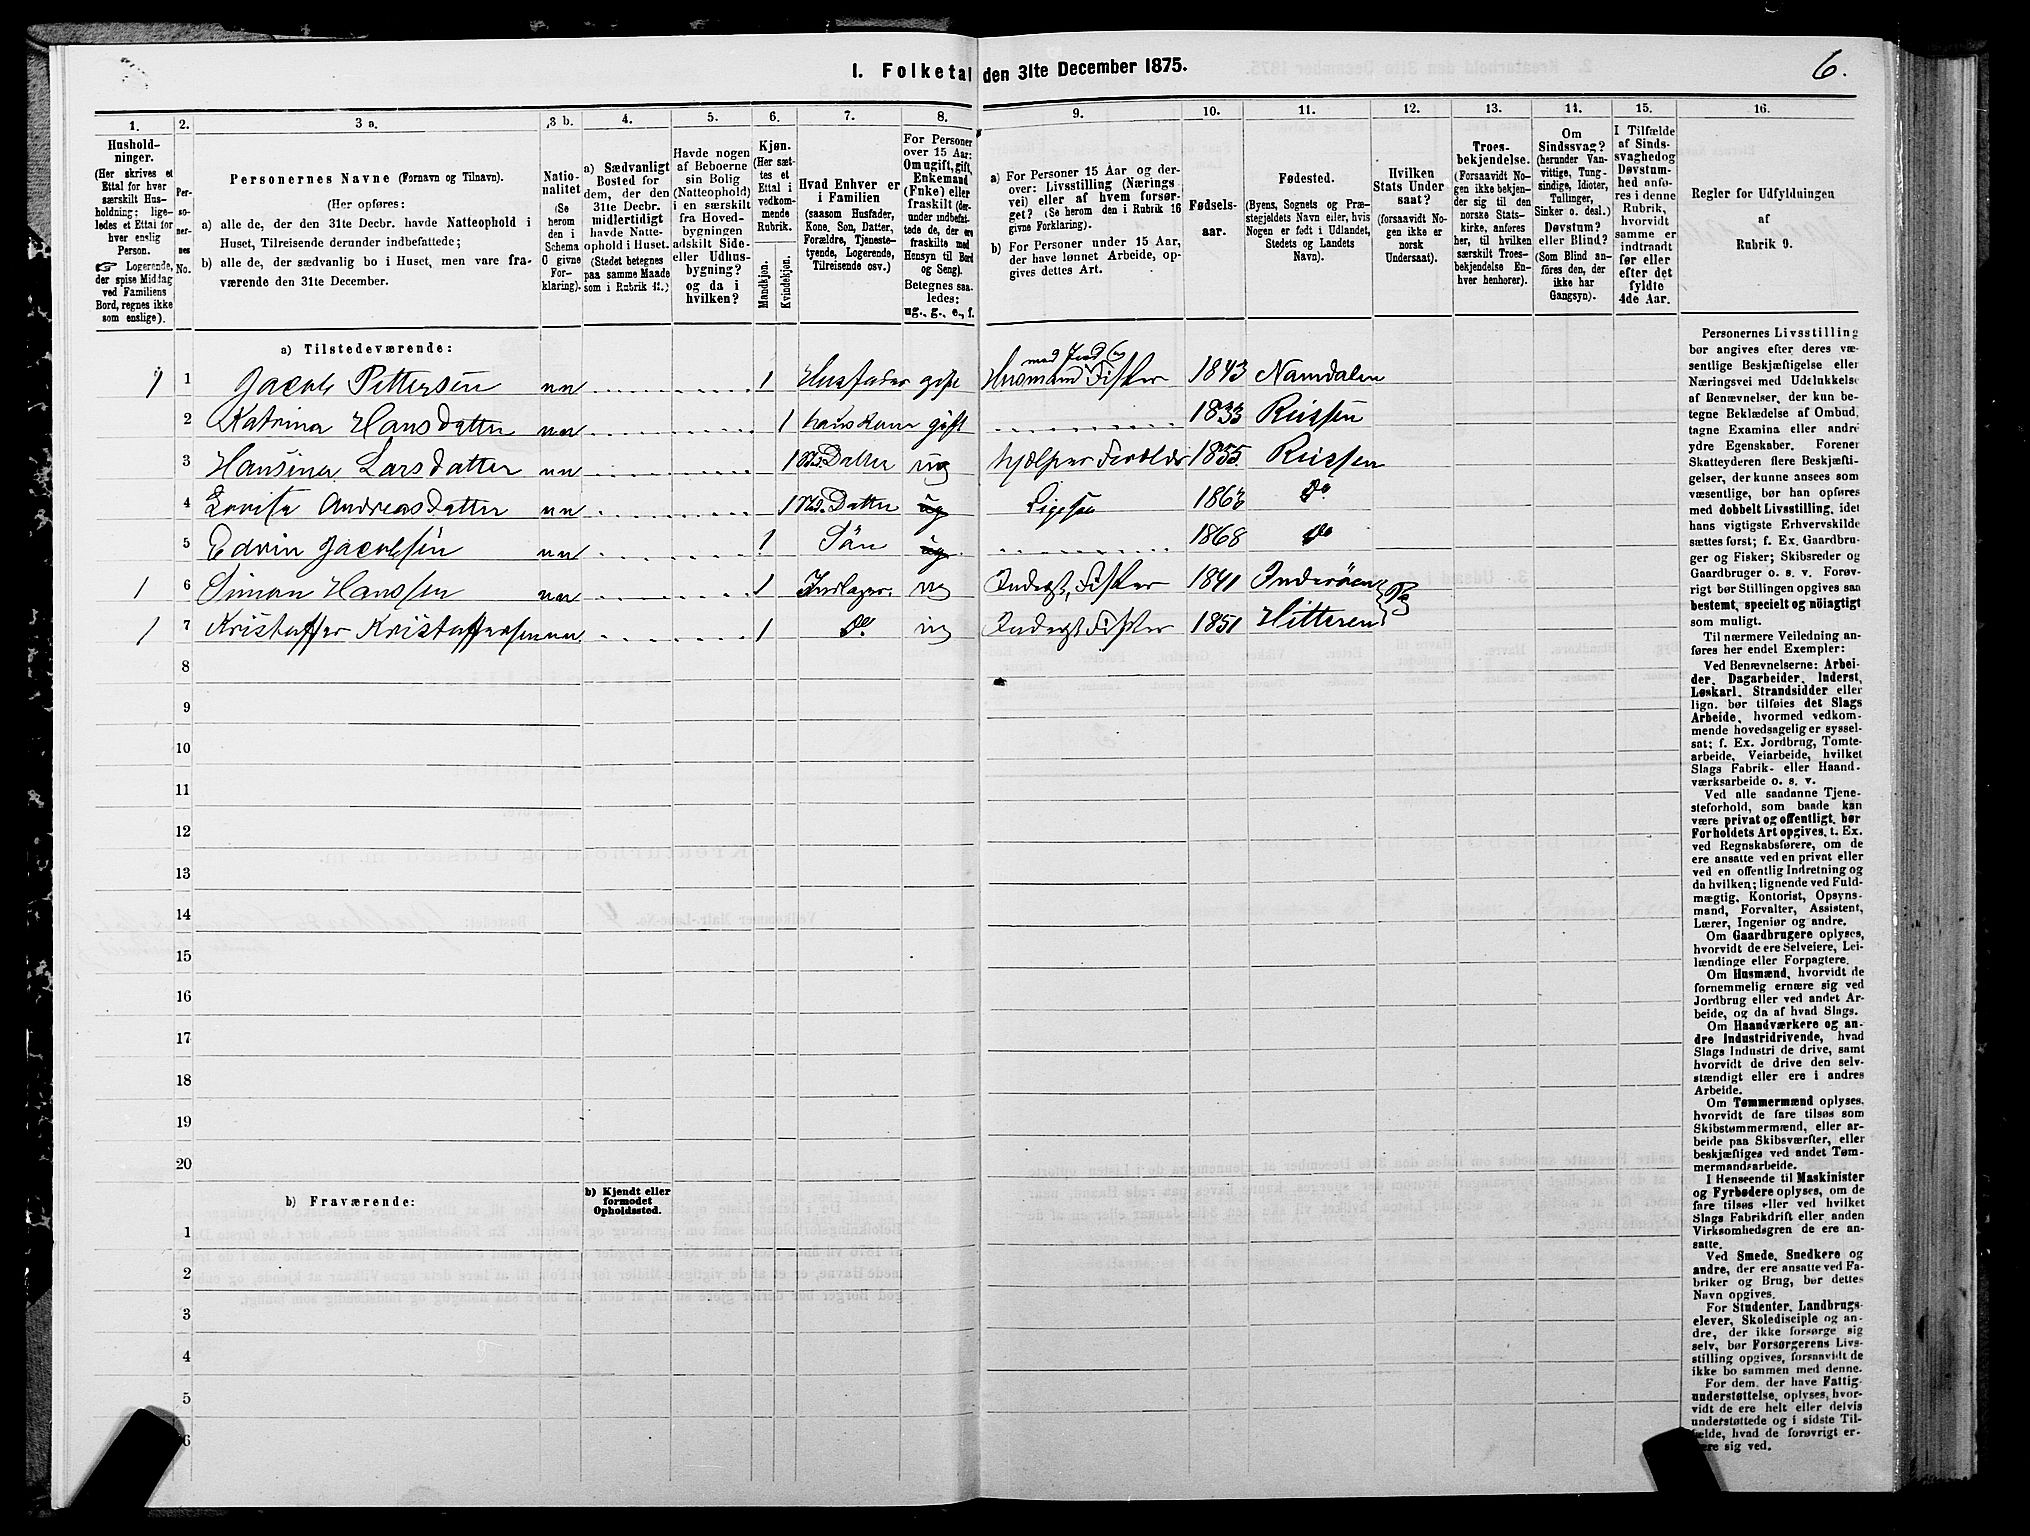 I. Folketal den 31te December 1875.
6.
1.
Hushold-
ninger.
(Her skrives et
Ettal for hver
særskilt Hus-
holdning; lige-
ledes et Ettal for
hver enslig
Person.
☞ Logerende,
der spise Middag
ved Familiens
Bord, regnes ikke
som enslige).
2.
Per-
so-
ner-
nes
No.
3 a.
Personernes Navne (Fornavn og Tilnavn).
(Her opføres:
a) alle de, der den 31te Decbr. havde Natteophold i
Huset, Tilreisende derunder indbefattede;
b) alle de, der sædvanlig bo i Huset, men vare fra-
værende den 31te December.
3 b.
Natio-
nalitet
(Se
herom
den i
Schema
C givne
For-
klaring).
4.
a) Sædvanligt
Bosted for
dem, der den
31te Decbr.
midlertidigt
havde Natte-
ophold i Huset.
(Stedet betegnes
paa samme Maade
som i Rubrik 11.)
5.
Havde nogen
af Beboerne
sin Bolig
(Natteophold)
i en særskilt
fra Hoved-
bygningen
adskilt Side-
eller Udhus-
bygning?
og da i
hvilken?
6.
Kjøn.
(Her sæt-
tes et
Ettal i
vedkom-
mende
Rubrik.
Mandkjøn.
Kvindekjøn.
7.
Hvad Enhver er
i Familien
(saasom Husfader,
Kone, Søn, Datter,
Forældre, Tjeneste-
tyende, Logerende,
Tilreisende osv.)
8.
For Personer
over 15 Aar:
Om ugift, gift,
Enkemand
(Enke) eller
fraskilt (der-
under indbefat-
tede de, der ere
fraskilte med
Hensyn til Bord
og Seng).
Betegnes saa-
ledes:
ug., g., e., f.
9.
a) For Personer 15 Aar og der-
over: Livsstilling (Nærings-
vei) eller af hvem forsør-
get? (Se herom den i Rubrik 16
givne Forklaring).
b) For Personer under 15 Aar,
der have lønnet Arbeide, op-
gives dettes Art.
10.
Fødsels-
aar.
11.
Fødested.
(Byens, Sognets og Præ-
stegjeldets Navn eller, hvis
Nogen er født i Udlandet,
Stedets og Landets
Navn).
12.
Hvilken
Stats Under-
saat?
(forsaavidt No-
gen ikke er
norsk
Undersaat).
13.
Troes-
bekjendelse.
(Forsaavidt No-
gen ikke bekjen-
der sig til den
norske Stats-
kirke, anføres
her, til hvilken
særskilt Troes-
bekjendelse En-
hver henhorer).
14.
Om
Sindssvag?
(herunder Van-
vittige, Tung-
sindige, Idioter,
Tullinger,
Sinker o. desl.)
Døvstum?
eller Blind?
(Som Blind an-
føres den, der
ikke har
Gangsyn).
15.
I Tilfælde
af Sinds-
svaghed og
Døvstum-
hed anfø-
res i denne
Rubrik,
hvorvidt
samme er
indtraadt
før eller
efter det
fyldte
4de Aar.
16.
Regler for Udfyldningen
af
Rubrik 9.
a) Tilstedeværende:
1 1 Jacob Pettersen nn 1 Husfader gift Husmand med Jord og Fisker 1843 Namdalen
2 Katrina Hansdatter nn 1 hans kone gift 1833 Rissen
3 Hansina Larsdatter nn 1 Datter ug hjælper Foreldr 1855 Rissen
4 Lovisa Andreasdatter nn 1 Datter ug Ligesaa 1863 Do
5 Edvin Jacobsen nn 1 Søn ug 1868 Do
1 6 Simon Hanssen nn 1 Inloger. ug Inderst, Fisker 1841 Inderøen
1 7 Kristoffer Kristoffersen nn 1 Do. ug Inderst Fisker 1851 Hitteren
8
9
10
11
12
13
14
15
16
17
18
19
20
b) Fraværende:
b) Kjendt eller
formodet
Opholdssted.
1
2
3
4
5
6
Personernes Livsstilling
bør angives efter deres væ-
sentlige Beskjæftigelse eller
Næringsvei med Udelukkelse
af Benævnelser, der kun be-
tegne Beklædelse af Ombud,
tagne Examina eller andre
ydre Egenskaber. Forener
Skatteyderen flere Beskjæfti-
gelser, der kunne ansees som
væsentlige, bør han opføres
med dobbelt Livsstilling, idet
hans vigtigste Erhvervskilde
sættes først; f. Ex. Gaardbru-
ger og Fisker; Skibsreder og
Gaardbruger o. s. v. Forøv-
rigt bør Stillingen opgives saa
bestemt, specielt og nöiagtigt
som muligt.
Til nærmere Veiledning an-
føres her endel Exempler:
Ved Benævnelserne: Arbei-
der, Dagarbeider, Inderst,
Løskarl, Strandsidder eller
lign. bør tilføies det Slags
Arbeide, hvormed vedkom-
mende hovedsagelig er syssel-
sat; f. Ex. Jordbrug, Tomte-
arbeide, Veiarbeide, hvilket
Slags Fabrik- eller Haand-
værksarbeide o. s. v.
Ved alle saadanne Tjene-
steforhold, som baade kan
være privat og offentligt, bør
Forholdets Art opgives, t. Ex.
ved Regnskabsførere, om de
ere ansatte ved en privat eller
ved en offentlig Indretning og
da hvilken; lignende ved Fuld-
mægtig, Kontorist, Opsyns-
mand, Forvalter, Assistent,
Lærer, Ingeniør og andre.
Om Gaardbrugere oplyses,
hvorvidt de ere Selveiere, Lei-
lændinge eller Forpagtere.
Om Husmænd, hvorvidt de
fornemmelig ernære sig ved
Jordbrug eller ved andet Ar-
beide, og da af hvad Slags.
Om Haandværkere og an-
dre Industridrivende, hvad
Slags Industri de drive, samt
hvorvidt de drive den selv-
stændigt eller ere i andres
Arbeide.
Om Tømmermænd oplyses,
hvorvidt de fare tilsøs som
Skibstømmermænd, eller ar-
beide paa Skibsværfter, eller
beskjæftiges ved andet Tøm-
mermandsarbeide.
I Henseende til Maskinister
og Fyrbødere oplyses, om de
fare tilsøs eller ved hvilket
Slags Fabrikdrift eller anden
Virksomhedsgren de ere an-
satte.
Ved Smede, Snedkere og
andre, der ere ansatte ved Fa-
briker og Brug, bør dettes
Navn opgives.
For Studenter, Landbrugs-
elever, Skoledisciple og an-
dre, der ikke forsørge sig
selv, bør Forsørgerens Livs-
stilling opgives, forsaavidt de
ikke bo sammen med denne.
For dem, der have Fattig-
understøttelse, oplyses, hvor-
vidt de ere helt eller delvis
understøttede og i sidste Til-
fælde, hvad de forøvrigt er-
nære sig ved.